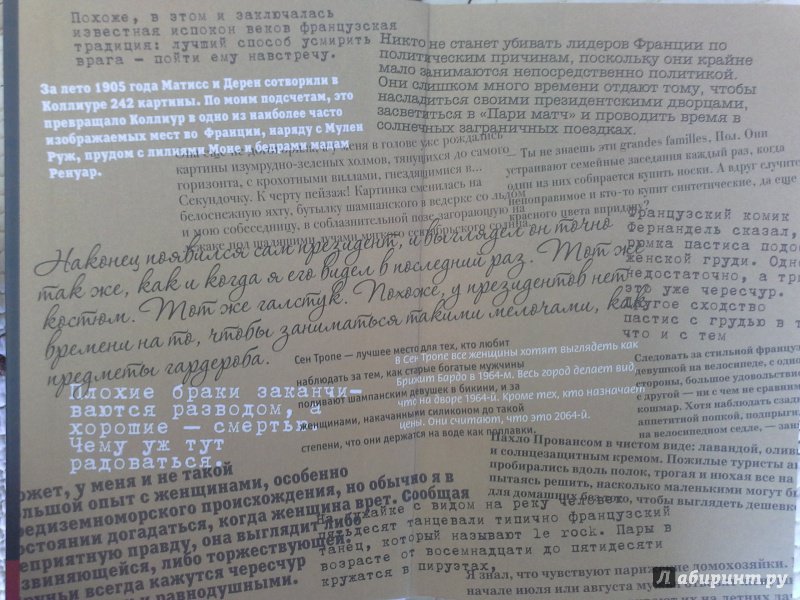 Похоже, в этом и заключалась
известная испокон веков французская
традиция: лучший способ усмирить
врага — пойти ему навстречу.
Никто не станет убивать лидеров Франции по
политическим причинам, поскольку они крайне
мало занимаются непосредственно политикой.
Они слишком много времени отдают тому, чтобы
насладиться своими президентскими дворцами,
засветиться в «Пари матч» и проводить время в
солнечных заграничных поездках.
За лето 1905 года Матисс и Дерен сотворили в
Коллиуре 242 картины. По моим подсчетам, это
превращало Коллиур в одно из наиболее часто
изображаемых мест во Франции, наряду с Мулен
Руж, прудом с лилиями Моне и бедрами мадам
Ренуар.
у меня в голове уже рождались
картины изумрудно-зеленых холмов, тянущихся до самого
горизонта, с крохотными виллами, гнездящимися в...
Секундочку. К черту пейзаж! Картинка сменилась на
белоснежную яхту, бутылку шампанского в ведерке со льдом
и мою собеседницу, в соблазнительной позе загорающую на
лежаке под щадящими лучами мягкого сентябрьского солнца.
— Ты не знаешь эти grandes familles, Пол. Они
устраивают семейные заседания каждый раз, когда
один из них собирается купить носки. А вдруг случится
непоправимое и кто-то купит синтетические, да еще
красного цвета впридачу?
Французский комик
Фернандель сказал,
рюмка пастиса подо
женской груди. Одно
недостаточно, а три
это уже чересчур.
Другое сходство
пастис с грудью в т
что и с тем
Наконец появился сам президент, и выглядел он точно
так же, как и когда я его видел в последний раз. Тот же
костюм. Тот же галстук. Похоже, у президентов нет
времени на то, чтобы заниматься такими мелочами, как
предметы гардероба.
Сен Тропе — лучшее место для тех, кто любит
наблюдать за тем, как старые богатые мужчины
поливают шампанским девушек в бикини, и за
женщинами, накачанными силиконом до такой
степени, что они держатся на воде как поплавки.
В Сен Тропе все женщины хотят выглядеть как
Брижит Бардо в 1964-м. Весь город делает вид,
что на дворе 1964-й. Кроме тех, кто назначает
цены. Они считают, что это 2064-й.
Следовать за стильной француз
девушкой на велосипеде, с одно
стороны, большое удовольствие
с другой — ни с чем не сравним
кошмар. Хотя наблюдать сзади
аппетитной попкой, подпрыги
на велосипедном седле, — зан
Плохие браки заканчи-
ваются разводом, а
хорошие — смертью.
Чему уж тут
радоваться.
Пахло Провансом в чистом виде: лавандой, олив
и солнцезащитным кремом. Пожилые туристы
пробирались вдоль полок, трогая и нюхая все на
пытаясь решить, насколько маленькими могут бы
для домашних безе чтобы выглядеть дешевк
ожет, у меня и не такой
льшой опыт с женщинами, особенно
едиземноморского происхождения, но обычно я в
стоянии догадаться, когда женщина врет. Сообщая
еприятную правду, она выглядит либо
звиняющейся, либо торжествующей.
руньи всегда кажутся чересчур
и равнодушными.
На лужайке с видом на реку человек
пятьдесят танцевали типично французский
танец, который называют le rock. Пары в
возрасте от восемнадцати до пятидесяти
кружатся в пируэтах,
Я знал, что чувствуют парижские домохозяйки.
начале июля или августа
Лабиринт.ру